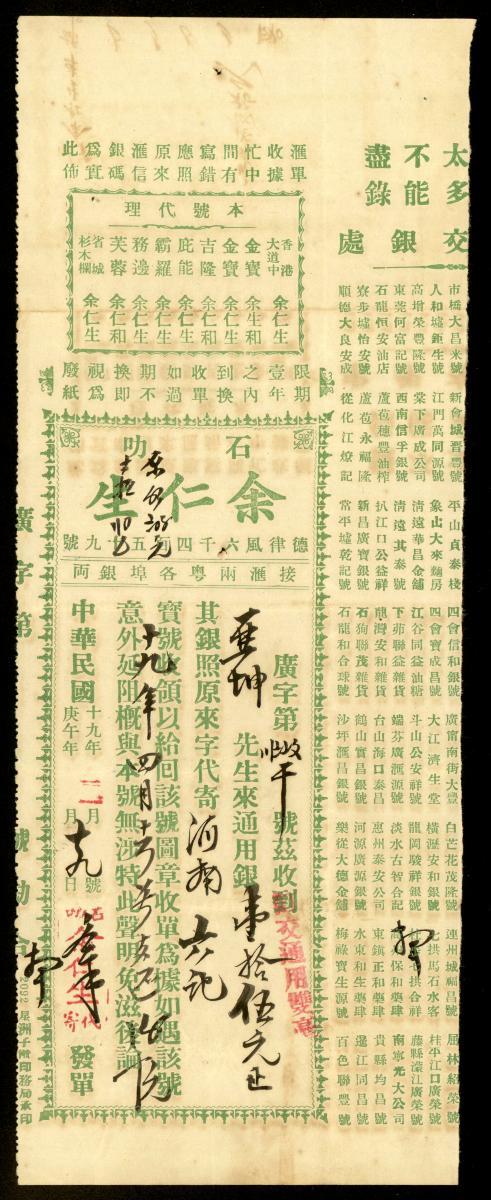 太多不能盡錄
交銀處
市橋大昌米號
人和墟鉅生號
高增榮豐隆號
東莞何富記號
石龍恒安油店
寮步墟怡安號
順德大良安成
新會城晋豐號
江門萬同源號
棠下廣成公司
西南信孚銀號
蘆苞穗豐油榨
蘆苞永福隆
從化江燎記
平山貞泰棧
象山大來麵房
清遠華昌金舖
清遠其泰號
扒江口公益祥
新昌廣寶銀號
常平墟乾記號
四會信和銀號
四會寶成昌號
江谷同益油糖
下茆聯益雜貨
龍灣安和雜貨
石狗聯茂雜貨
石龍和合球號
廣甯南街大豐
大江濟生堂
斗山公安祥號
端芬廣滙源號
台山海口泰昌
鶴山實昌銀號
沙坪滙昌銀號
白芒花茂隆號
橫瀝安和銀號
龍岡駿祥銀號
淡水古智合記
惠州泰安公司
河源廣源銀號
樂從大德金舖
連州城福昌號
七拱馬石水客
拱合祥
保和藥肆
東鎮正和藥肆
水東和生藥肆
梅祿寶生源號
屈林紹榮號
桂平江口廣榮號
藤縣濛江廣榮號
南寧光大公司
貴縣均昌號
邊江同昌號
百色聯豐號
滙單收據忙中間有寫錯應照原來滙信銀碼爲實此佈
本號代理
香港大道中 余仁生
金寶 余生和
金寶 余仁生
吉隆 余仁和
庇能 余仁生
霸羅 余仁生
務邊 余仁生
芙蓉 余仁和
省城杉木欄 余仁生
限期壹年之內到換收單如過期不換即視爲廢紙
石叻
余仁生
德律風六千四百五十九號
接滙兩粵各埠銀両
廣字第 號茲收到
亚坤 先生來通用銀壹拾伍元正
交通用雙毫
其銀照原來字代寄河南六記
寶號收領以給回該號圖章收單爲據如遇該號
意外延阻概與本號無涉特此聲明免滋後論
十九年四月
中華民國十九年庚午年三月十九日號
石叻余仁生代寄
發單
廣字第
號勷合
2092 星洲子麟印務局承印